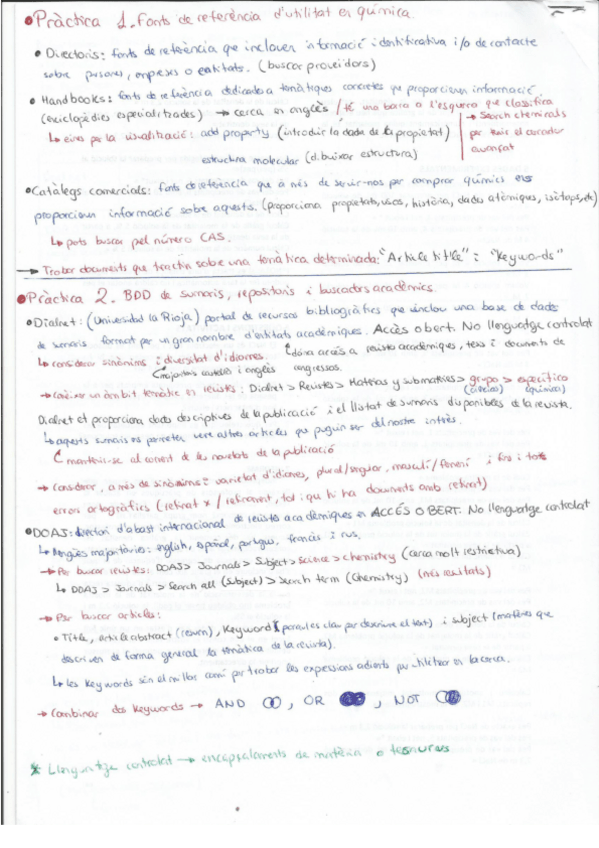 • Pràctica 1. Fonts de referència d'utilitat en química
• Directoris: fonts de referència que inclouen informació identificativa i/o de contacte
sobre persones, empreses o entitats. (buscar proveïdors)
• Handbooks: fonts de referència dedicades a temàtiques concretes que proporcionen informació
(enciclopèdies especialitzades) → cerca en anglès / té una barra a l'esquerra que classifica
→ Search chemicals
per tenir el cercador
avançat
↳ eines per la visualització: add property (introduir la dada de la propietat)
estructura molecular (dibuixar estructura)
• Catàlegs comercials: fonts de referència que a més de servir-nos per comprar químics ens
proporcionen informació sobre aquests. (proporciona propietats, usos, història, dades atòmiques, isòtops, etc)
↳ pots buscar pel número CAS.
→ Trobar documents que tractin sobre una temàtica determinada: "Article title" i "Keywords"
• Pràctica 2. BDD de sumaris, repositoris i buscadors acadèmics.
• Dialnet: (Universidad la Rioja) portal de recursos bibliogràfics que inclou una base de dades
de sumaris format per un gran nombre d'entitats acadèmiques. Accès obert. No llenguatge controlat
↳ considerar sinònims i diversitat d'idiomes. dóna accés a revistes acadèmiques, tesis i documents de
majoritaris castellà i anglès congressos.
→ Cercar un àmbit temàtic en revistes: Dialnet > Revistes > Matèries y submatèries > grupo > específico
(ciències) (química)
Dialnet et proporciona dades descriptives de la publicació i el llistat de sumaris disponibles de la revista.
↳ aquests sumaris ens permeten veure altres articles que puguin ser del nostre interès.
mantenir-se al corrent de les novetats de la publicació
→ Considerar, a més de sinònims: varietat d'idiomes, plural/singular, masculí/femení i fins i tot
errors ortogràfics (retirat x / retirament, tot i que hi ha documents amb retirat)
• DOAJ: directori d'abast internacional de revistes acadèmiques en ACCÉS OBERT. No llenguatge controlat
↳ Llengües majoritàries: english, español, portugues, francés i rus.
→ Per buscar revistes: DOAJ > Journals > Subject > Science > chemistry (cerca molt restrictiva)
↳ DOAJ > Journals > Search all (Subject) > Search term (Chemistry) (més resultats)
→ Per buscar articles:
• Title, article abstract (resum), Keyword (paraules clau per descriure el text) i subject (matèries que
descriuen de forma general la temàtica de la revista).
↳ Les Keywords són el millor camí per trobar les expressions adients per utilitzar en la cerca.
→ Combinar dos Keywords → AND , OR , NOT
* Llenguatge controlat → encapçalaments de matèria o tesaurus